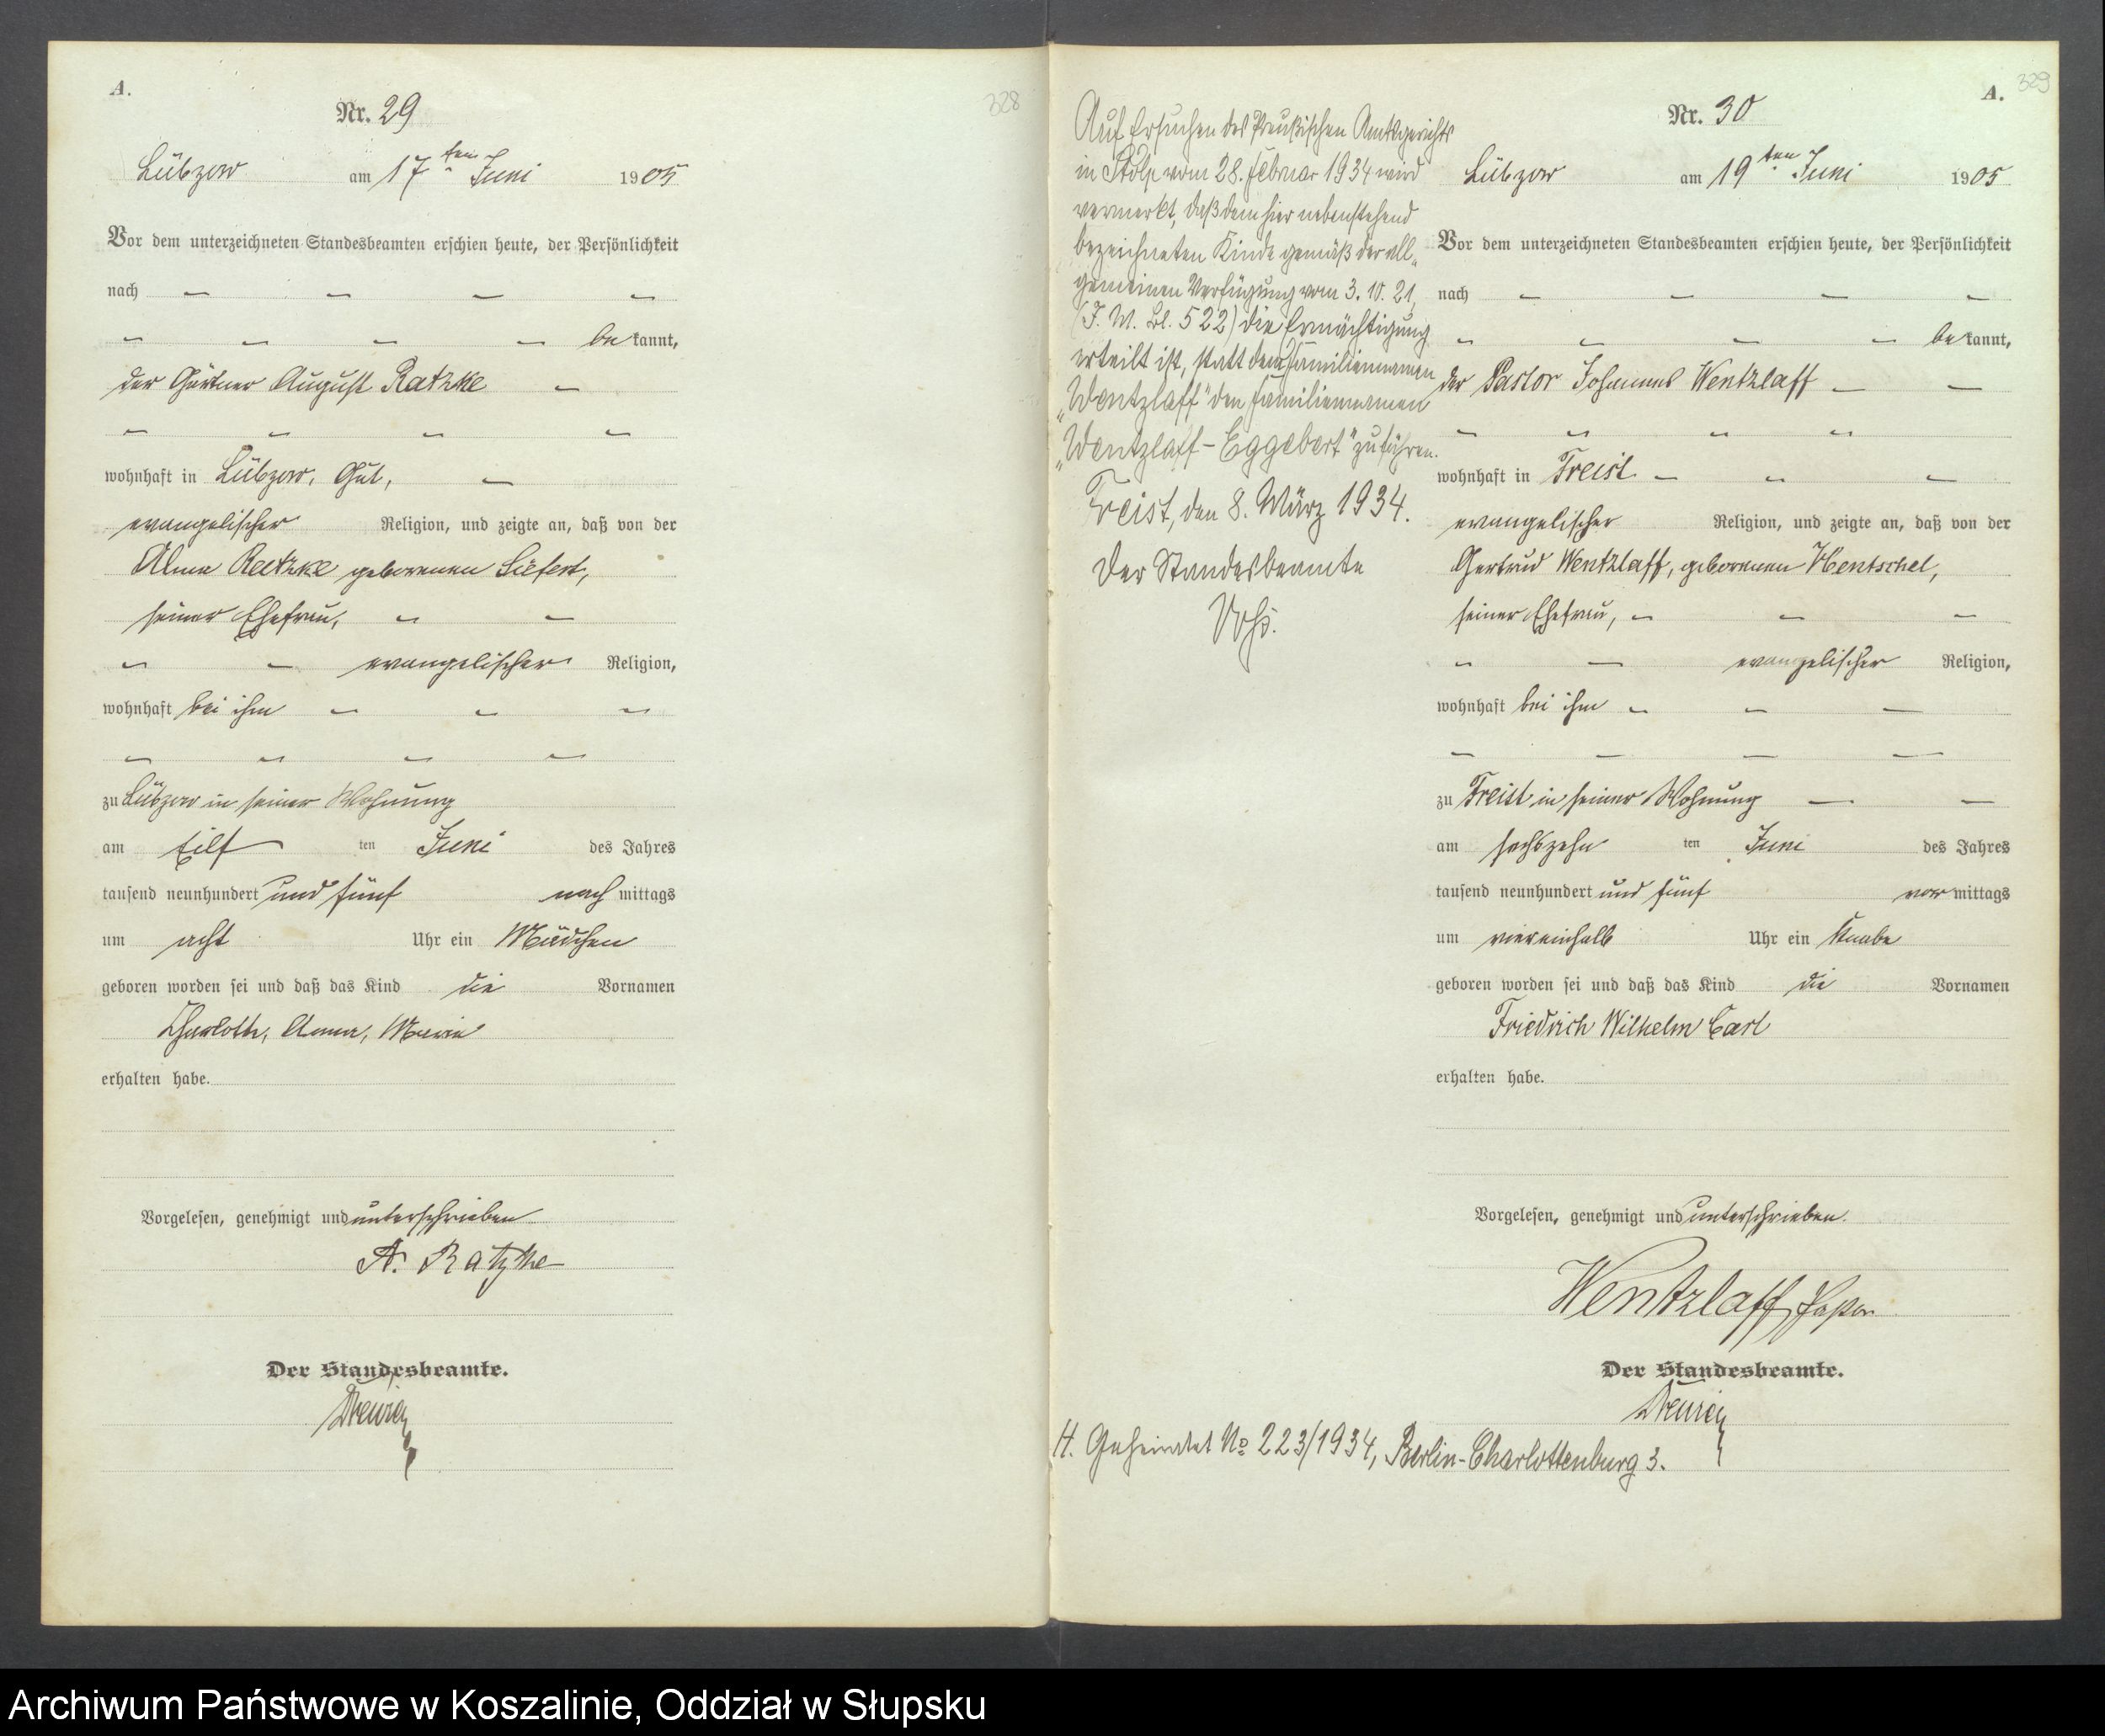 A.
328
Nr. 29
Lübzow am 17ten Juni 1905
Vor dem unterzeichneten Standesbeamten erschien heute, der Persönlichkeit
nach
be kannt,
der Gärtner August Ratzke
wohnhaft in Lübzow, Gut,
evangelischer Religion, und zeigte an, daß von der
Ratzke geborenen Siefert,
seiner Ehefrau,
evangelischer Religion,
wohnhaft bei ihm
zu Lübzow in seiner Wohnung
am eilf ten Juni des Jahres
tausend neunhundert und fünf nach mittags
um acht Uhr ein Mädchen
geboren worden sei und daß das Kind die Vornamen
Anna, Marie
erhalten habe.
Vorgelesen, genehmigt und unterschrieben
A. Ratzke
Der Standesbeamte.
Auf Ersuchen des Preußischen Amtsgerichts
in Stolp vom 28. Februar 1934 wird
vermerkt, daß dem hier nebenstehend
bezeichneten Kinde gemäß der all-
gemeinen Verfügung vom 3. 10. 21,
(J. M. Bl. 522) die Ermächtigung
erteilt ist, statt dem Familiennamen
„Wentzlaff" den Familiennamen
„Wentzlaff-Eggebert" zu führen.
Freist, den 8. März 1934.
Der Standesbeamte
329
A.
Nr. 30
Lübzow am 19ten Juni 1905
Vor dem unterzeichneten Standesbeamten erschien heute, der Persönlichkeit
nach
be kannt,
der Pastor Johannes Wentzlaff
wohnhaft in Freist
evangelischer Religion, und zeigte an, daß von der
Gertrud Wentzlaff, geborenen Hentschel,
seiner Ehefrau,
evangelischer Religion,
wohnhaft bei ihm
zu Freist in seiner Wohnung
am sechszehn ten Juni des Jahres
tausend neunhundert und fünf vor mittags
um viereinhalb Uhr ein Knabe
geboren worden sei und daß das Kind die Vornamen
Friedrich Wilhelm Carl
erhalten habe.
Vorgelesen, genehmigt und unterschrieben.
Wentzlaff, Pastor
Der Standesbeamte.
H. Geheiratet No 223/1934, Berlin-Charlottenburg 3.
Archiwum Państwowe w Koszalinie, Oddział w Słupsku